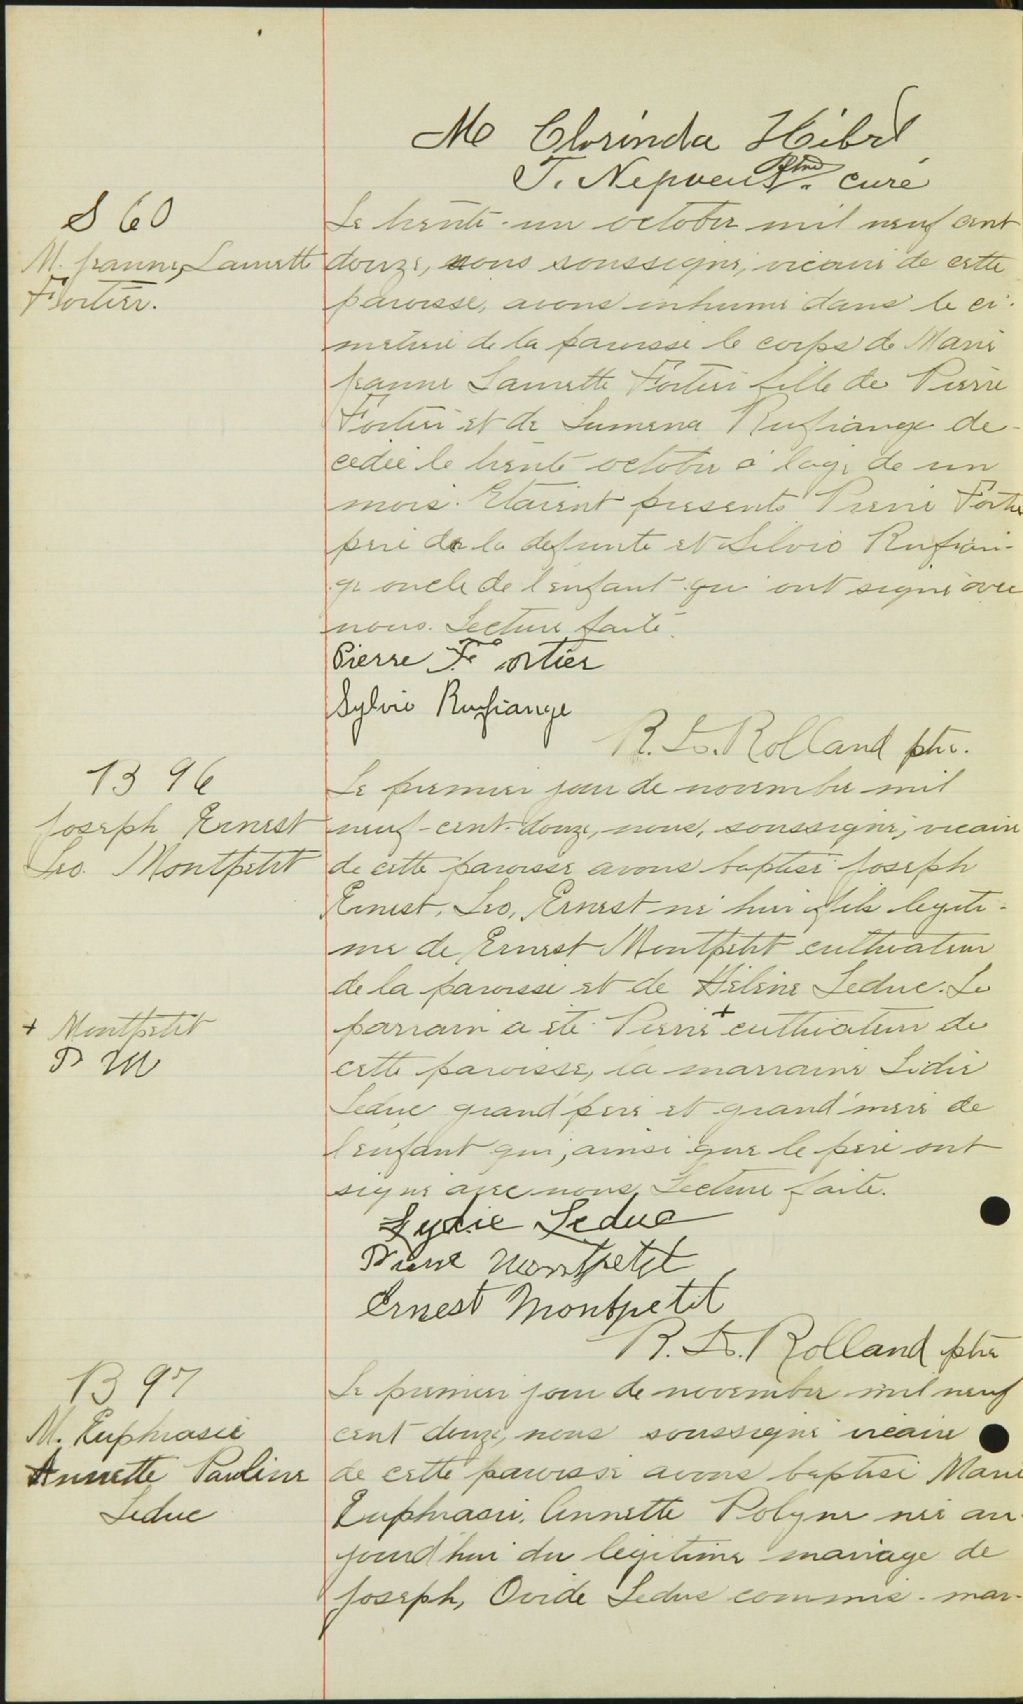 Me Clorinda Hibrt
T. Nepveu Ptre curé
S 60
M. Jeanne, Laurette
Fortier.
Le trente-un octobre mil neuf cent
douze, nous soussigné, vicaire de cette
paroisse, avons inhumé dans le ci-
metière de la paroisse le corps de Marie
Jeanne Laurette Fortier fille de Pierre
Fortier et de Lumena Rufiange dé-
cédée le trente octobre a l'age de un
mois. Etaient présents Pierre Fortier
père de la defunte et Silvio Rufian-
ge oncle de l'enfant qui ont signé avec
nous. Lecture faite.
Pierre Fortier
Sylvio Rufiange
R. Ls. Rolland ptre.
B 96
Joseph Ernest
Leo Montpetit
Le premier jour de novembre mil
neuf-cent-douze, nous, soussigné, vicaire
de cette paroisse avons baptisé Joseph
Ernest, Leo, Ernest né hier fils legiti-
me de Ernest Montpetit cultivateur
de la paroisse et de Hélène Leduc. Le
parrain a été Pierre + cultivateur de
+ Montpetit
P M
cette paroisse, la marraine Lidie
Leduc grand'père et grand'mère de
l'enfant qui, ainsi que le père ont
signé avec nous, Lecture faite.
Lydie Leduc
Pierre Montpetit
Ernest Montpetit
R. Ls. Rolland ptre
B 97
M. Euphrasie
Annette Pauline
Leduc
Le premier jour de novembre mil neuf
cent douze, nous soussigné vicaire
de cette paroisse avons baptisé Marie
Euphrasie, Annette Polyne née au-
jourd'hui du légitime mariage de
Joseph, Ovide Leduc commis-mar-